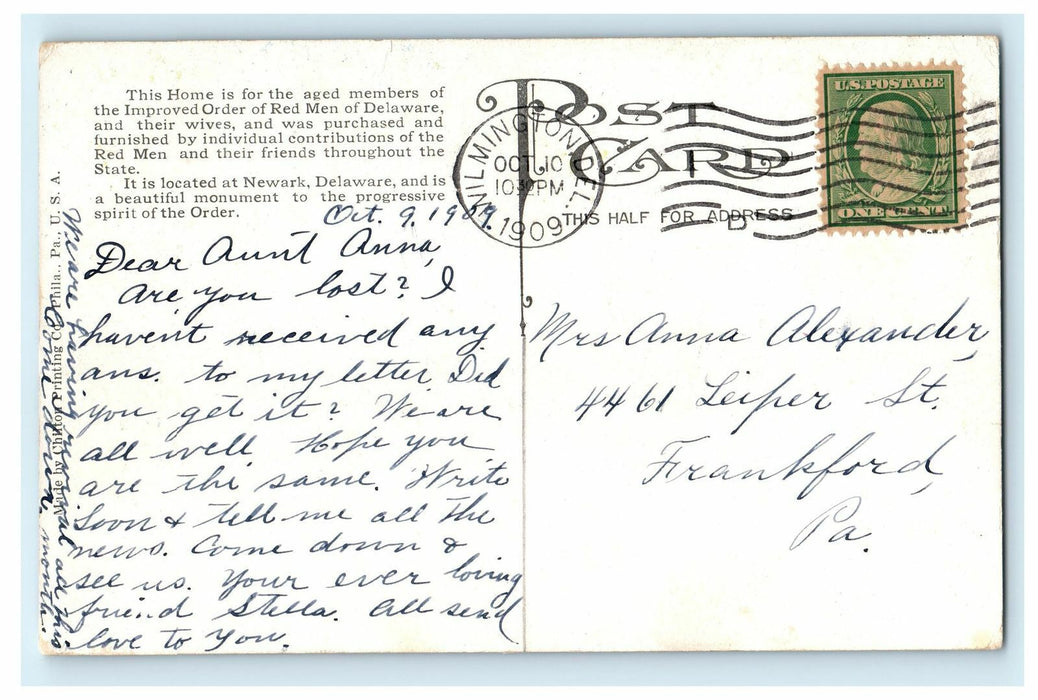 This Home is for the aged members of
the Improved Order of Red Men of Delaware,
and their wives, and was purchased and
furnished by individual contributions of the
Red Men and their friends throughout the
State.
It is located at Newark, Delaware, and is
a beautiful monument to the progressive
spirit of the Order.
Oct. 9, 1909.
Dear Aunt Anna,
Are you lost? I
haven't received any
ans. to my letter. Did
you get it? We are
all well Hope you
are the same. Write
Soon & tell me all the
news. Come down &
see us. Your ever loving
friend Stella. All send
love to you.
We are having revival all this
month.
Come down.
Made by Chilton Printing Co., Phila., Pa., U. S. A.
POST
CARD
THIS HALF FOR ADDRESS
WILMINGTON, DEL.
OCT 10
10 30 PM
1909
D
U.S. POSTAGE
ONE CENT
Mrs Anna Alexander,
4461 Leiper St.
Frankford,
Pa.